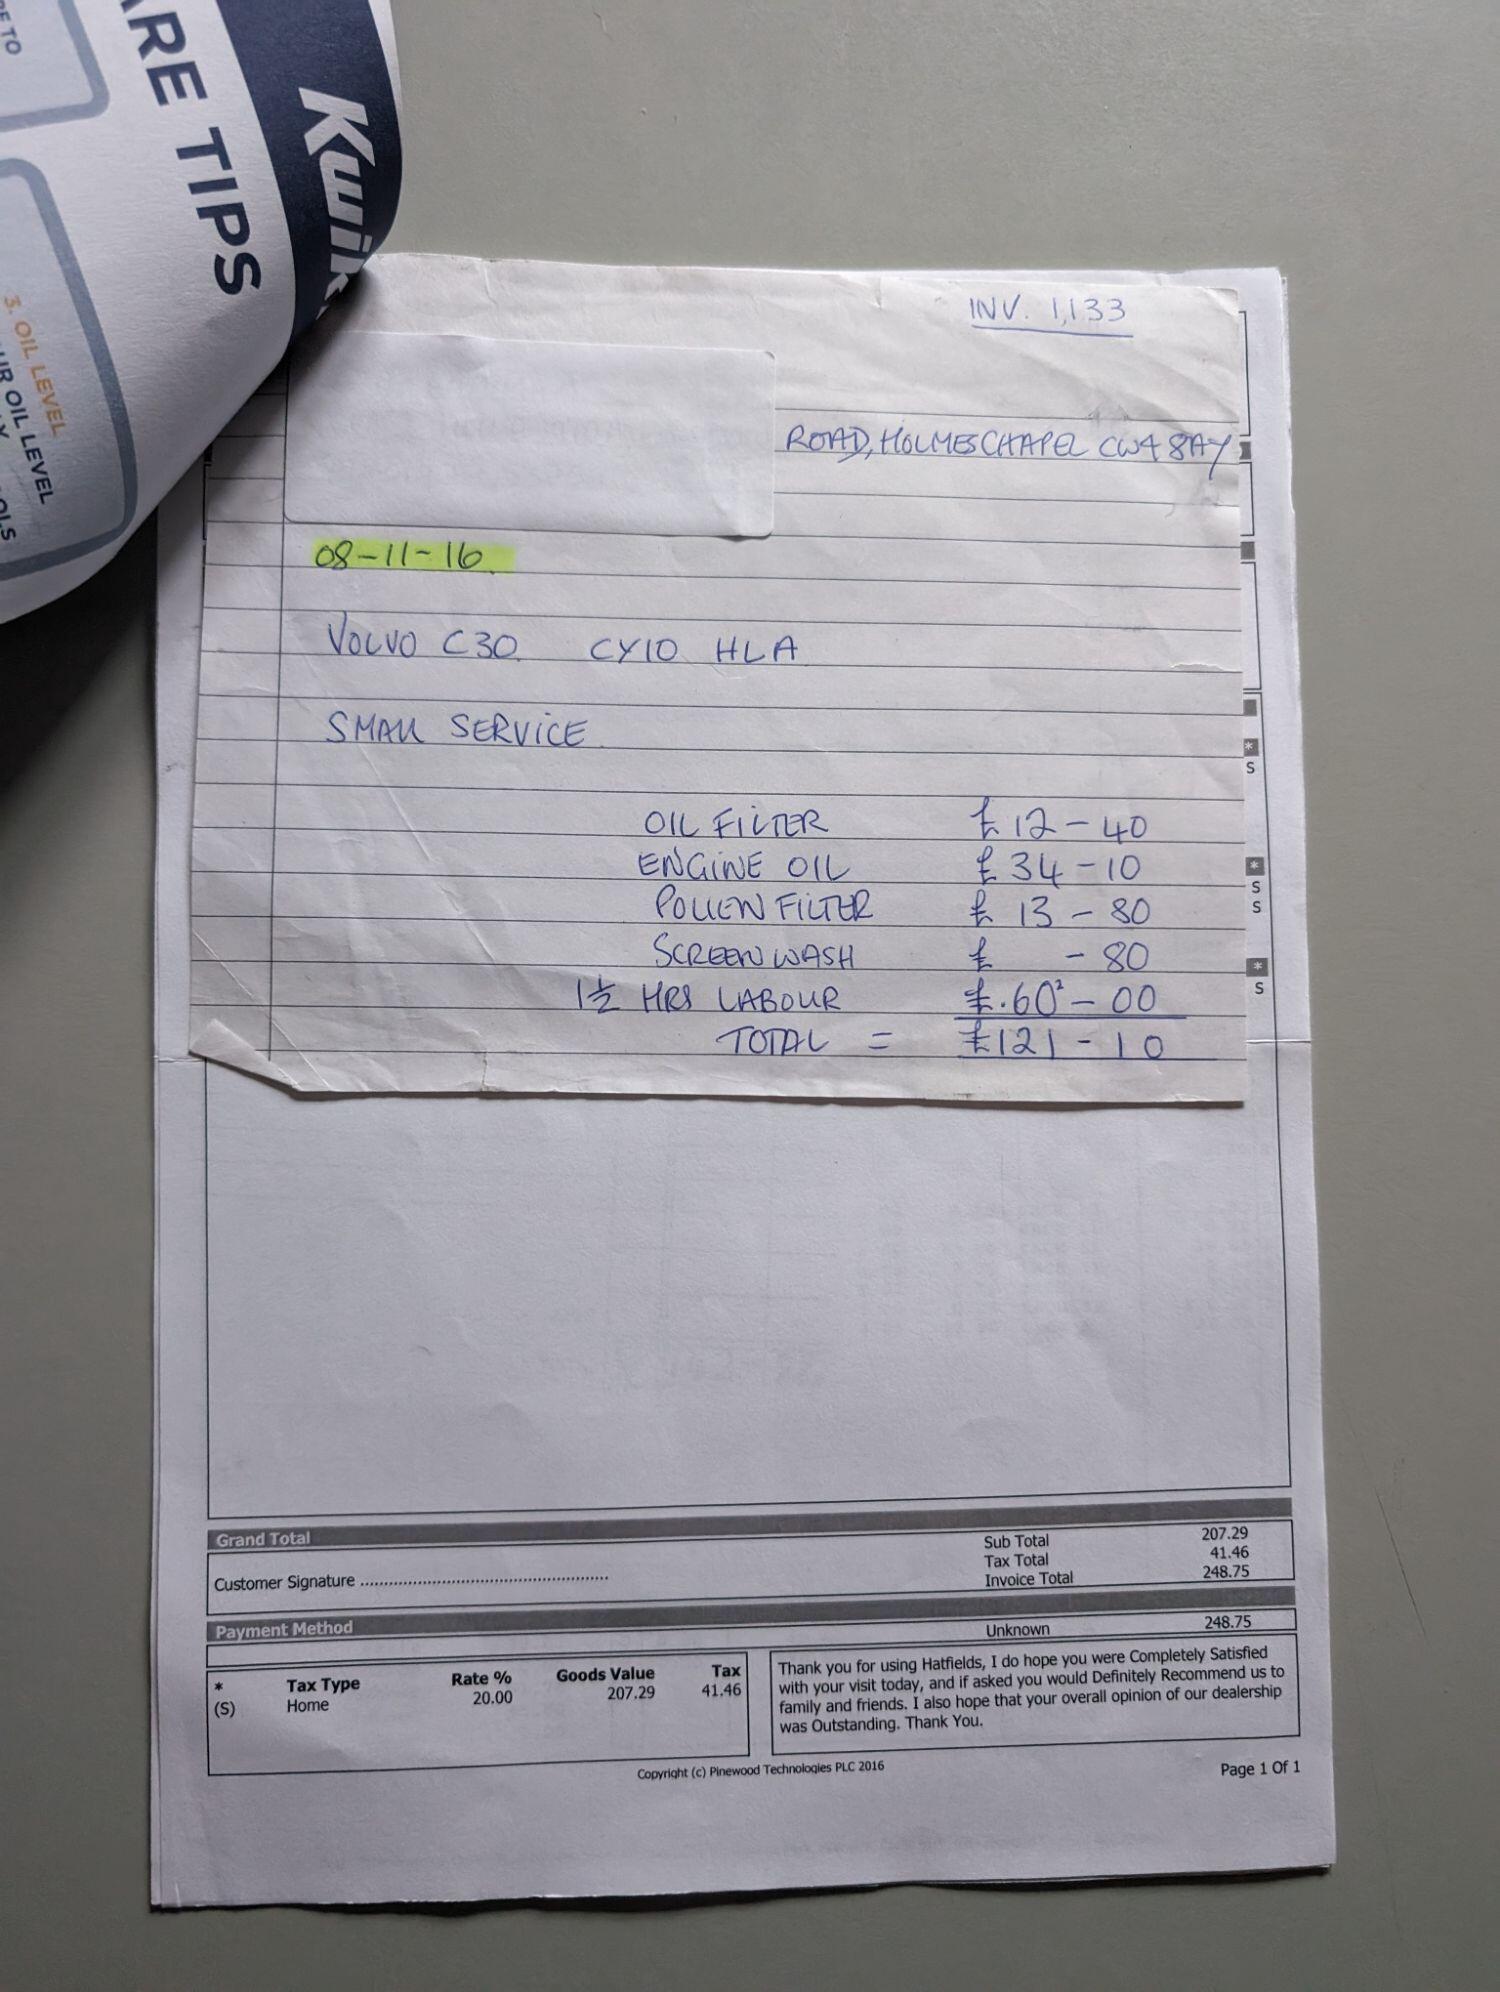 RE TO
ARE TIPS
Kwik
3. OIL LEVEL
UR OIL LEVEL
INV. 1,133
ROAD, HOLMES CHAPEL CW4 8AY
08-11-16
VOLVO C30 CY10 HLA
SMALL SERVICE
OIL FILTER £ 12-40
ENGINE OIL £ 34-10
POLLEN FILTER £ 13-80
SCREEN WASH £ -80
1½ HRS LABOUR £.60-00
TOTAL = £121-10
*
S
*
S
S
*
S
Grand Total
Sub Total 207.29
Tax Total 41.46
Customer Signature ....................................................
Invoice Total 248.75
Payment Method
Unknown 248.75
* Tax Type Rate % Goods Value Tax
(S) Home 20.00 207.29 41.46
Thank you for using Hatfields, I do hope you were Completely Satisfied
with your visit today, and if asked you would Definitely Recommend us to
family and friends. I also hope that your overall opinion of our dealership
was Outstanding. Thank You.
Copyright (c) Pinewood Technologies PLC 2016
Page 1 Of 1